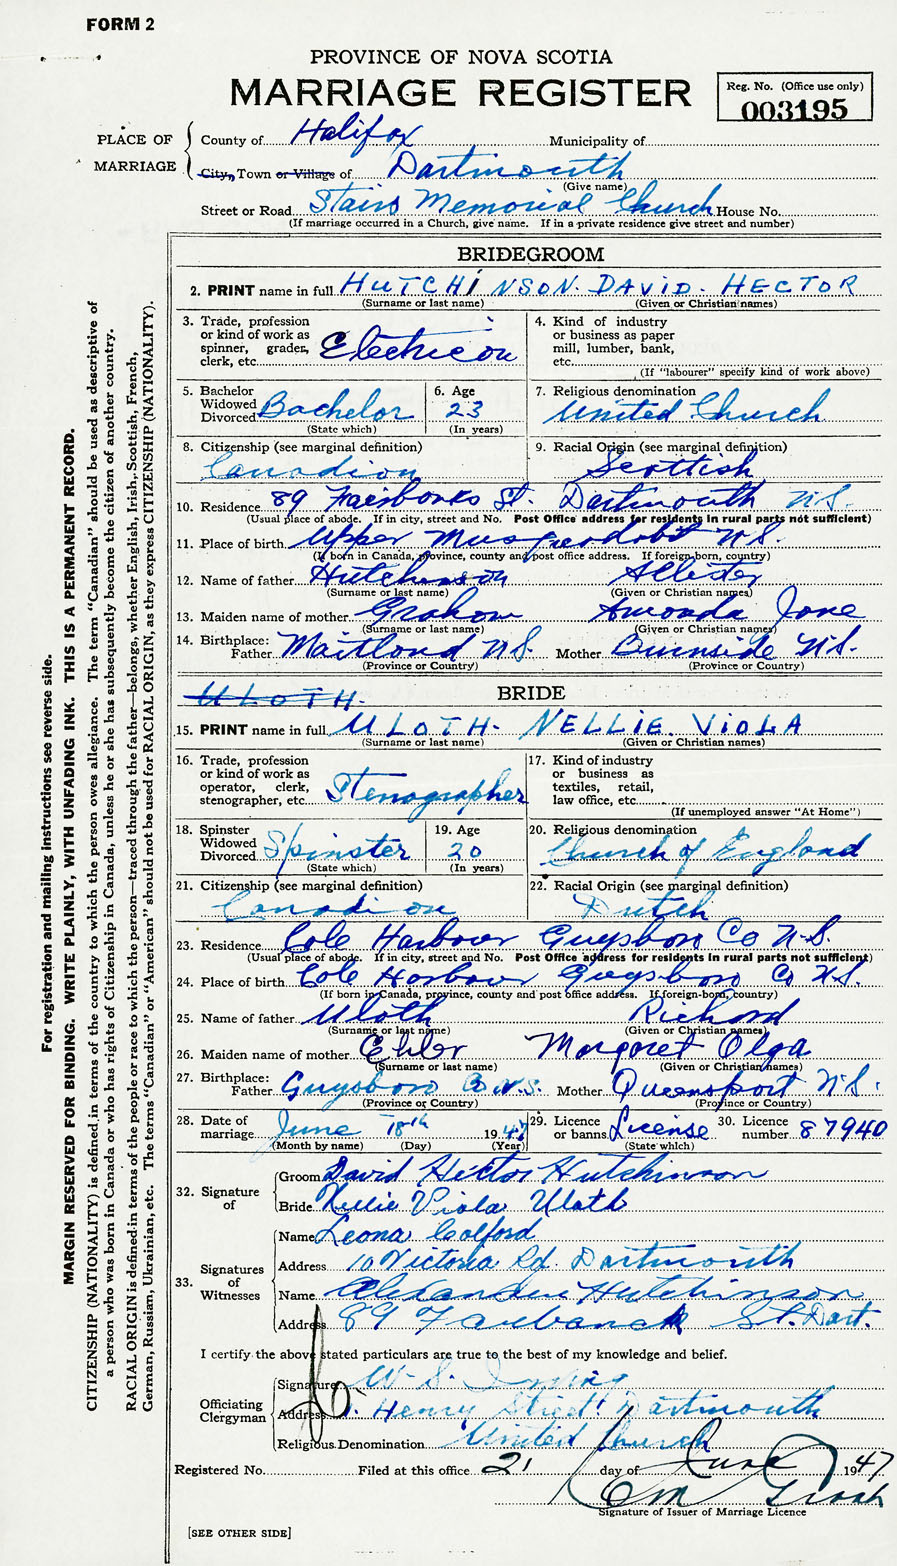 FORM 2
PROVINCE OF NOVA SCOTIA
MARRIAGE REGISTER
Reg. No. (Office use only)
003195
PLACE OF MARRIAGE
County of Halifax Municipality of
City, Town or Village of Dartmouth
(Give name)
Street or Road Stairs Memorial Church House No.
(If marriage occurred in a Church, give name. If in a private residence give street and number)
BRIDEGROOM
2. PRINT name in full HUTCHINSON. DAVID. HECTOR
(Surname or last name) (Given or Christian names)
3. Trade, profession or kind of work as spinner, grader, clerk, etc. Electrician
4. Kind of industry or business as paper mill, lumber, bank, etc.
(If "labourer" specify kind of work above)
5. Bachelor Widowed Divorced Bachelor
(State which)
6. Age 23
(In years)
7. Religious denomination United Church
8. Citizenship (see marginal definition) Canadian
9. Racial Origin (see marginal definition) Scottish
10. Residence 89 Fairbanks St. Dartmouth N.S.
(Usual place of abode. If in city, street and No. Post Office address for residents in rural parts not sufficient)
11. Place of birth Upper Musquodobit N.S.
(If born in Canada, province, county and post office address. If foreign-born, country)
12. Name of father Hutchinson Allister
(Surname or last name) (Given or Christian names)
13. Maiden name of mother Graham Amanda Jane
(Surname or last name) (Given or Christian names)
14. Birthplace: Father Maitland N.S. Mother Burnside N.S.
(Province or Country) (Province or Country)
ULOTH.
BRIDE
15. PRINT name in full ULOTH. NELLIE VIOLA
(Surname or last name) (Given or Christian names)
16. Trade, profession or kind of work as operator, clerk, stenographer, etc. Stenographer
17. Kind of industry or business as textiles, retail, law office, etc.
(If unemployed answer "At Home")
18. Spinster Widowed Divorced Spinster
(State which)
19. Age 20
(In years)
20. Religious denomination Church of England
21. Citizenship (see marginal definition) Canadian
22. Racial Origin (see marginal definition) Dutch
23. Residence Cole Harbour Guysboro Co N.S.
(Usual place of abode. If in city, street and No. Post Office address for residents in rural parts not sufficient)
24. Place of birth Cole Harbour Guysboro Co N.S.
(If born in Canada, province, county and post office address. If foreign-born, country)
25. Name of father Uloth Richard
(Surname or last name) (Given or Christian names)
26. Maiden name of mother Ehler Margaret Olga
(Surname or last name) (Given or Christian names)
27. Birthplace: Father Guysboro Co N.S. Mother Queensport N.S.
(Province or Country) (Province or Country)
28. Date of marriage June 18th 1947
(Month by name) (Day) (Year)
29. Licence or banns License
(State which)
30. Licence number 87940
32. Signature of
Groom David Hector Hutchinson
Bride Nellie Viola Uloth
33. Signatures of Witnesses
Name Leona Colford
Address 10 Victoria Rd. Dartmouth
Name Alexander Hutchinson
Address 89 Faribanak St. Dart.
I certify the above stated particulars are true to the best of my knowledge and belief.
Officiating Clergyman
Signature W. S. Irving
Address Henry Street Dartmouth
Religious Denomination United Church
Registered No. Filed at this office 21 day of June 1947
Signature of Issuer of Marriage Licence
[SEE OTHER SIDE]
For registration and mailing instructions see reverse side.
MARGIN RESERVED FOR BINDING. WRITE PLAINLY, WITH UNFADING INK. THIS IS A PERMANENT RECORD.
CITIZENSHIP (NATIONALITY) is defined in terms of the country to which the person owes allegiance. The term "Canadian" should be used as descriptive of
a person who was born in Canada or who has rights of Citizenship in Canada, unless he or she has subsequently become the citizen of another country.
RACIAL ORIGIN is defined in terms of the people or race to which the person—traced through the father—belongs, whether English, Irish, Scottish, French,
German, Russian, Ukrainian, etc. The terms "Canadian" or "American" should not be used for RACIAL ORIGIN, as they express CITIZENSHIP (NATIONALITY).